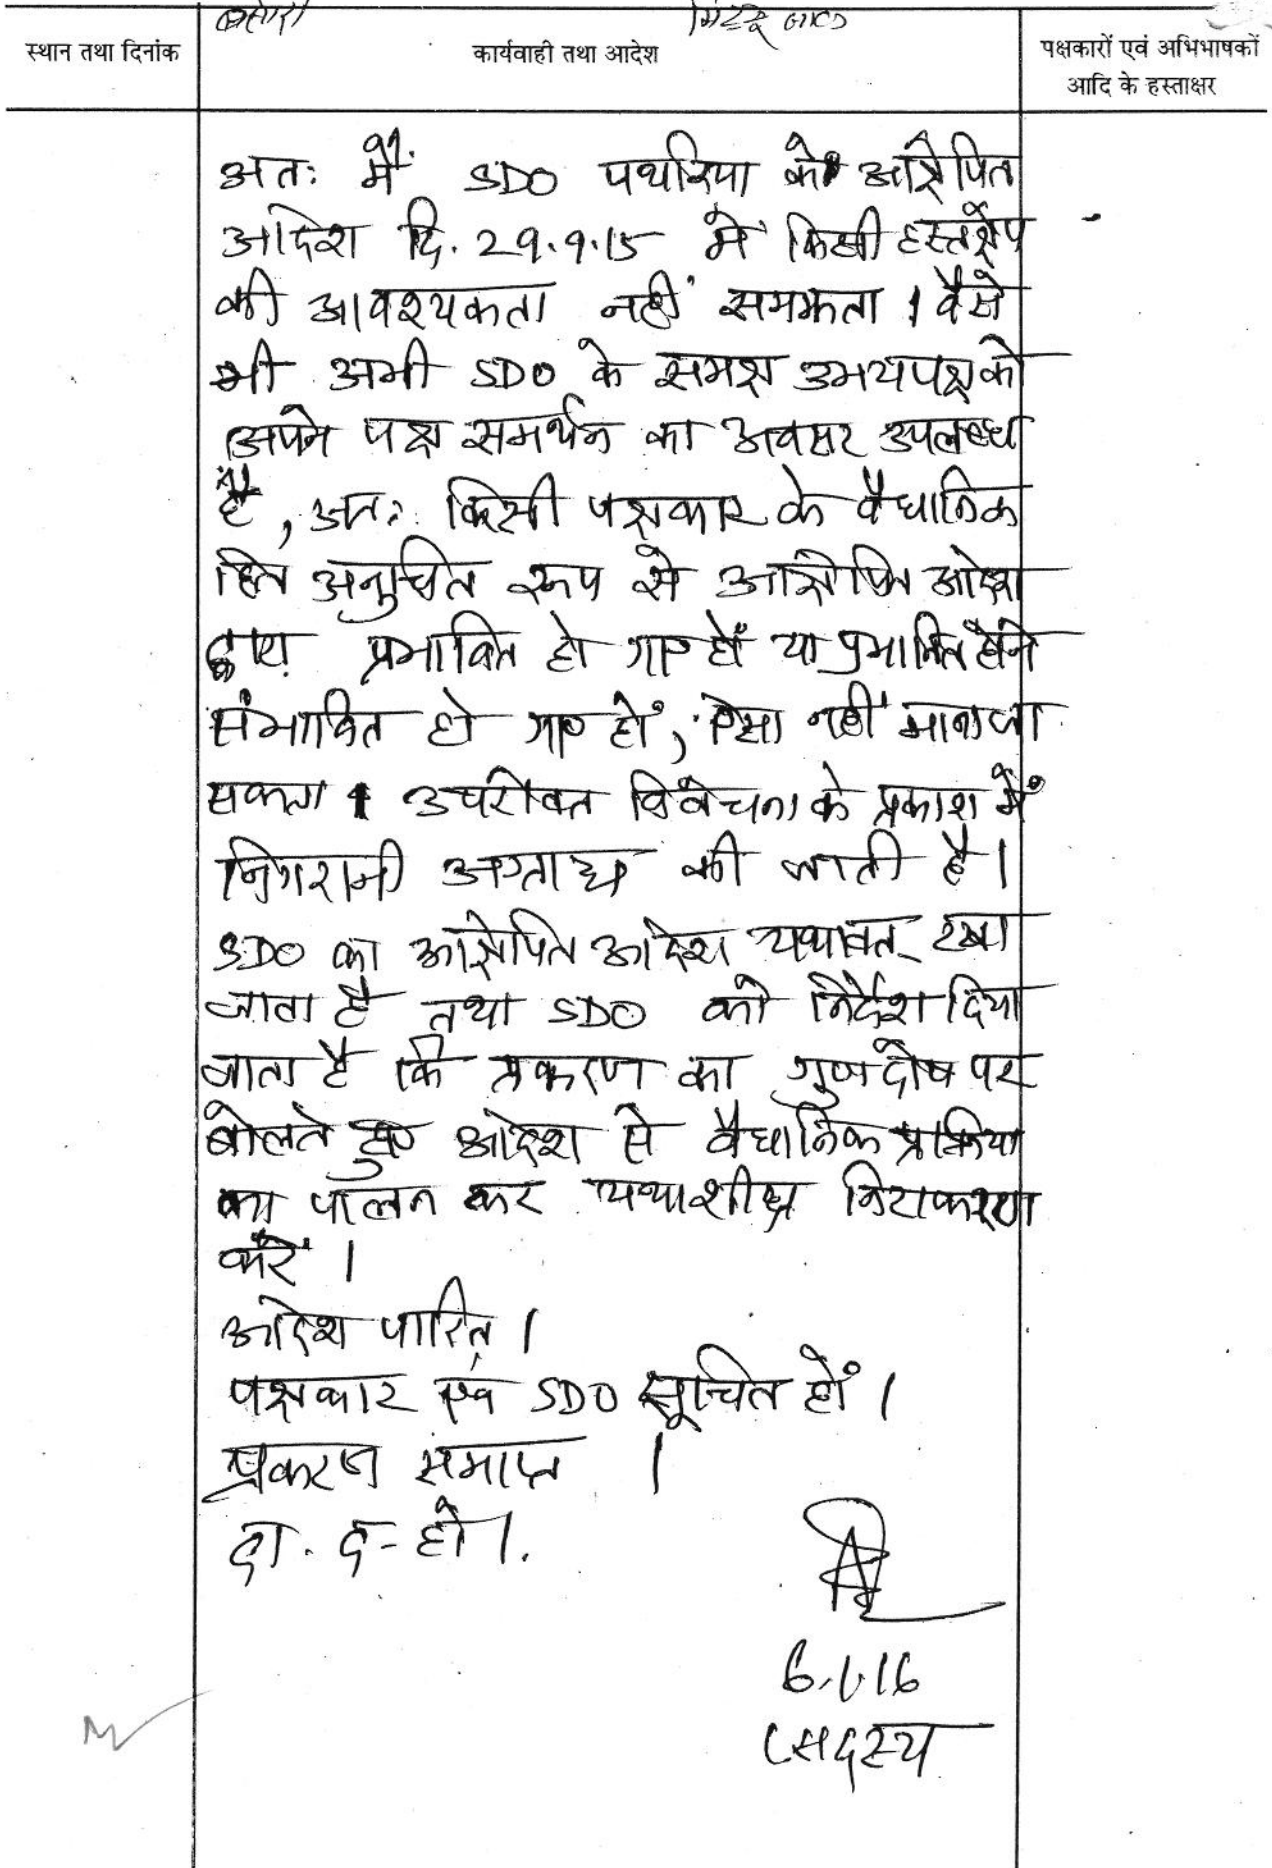 स्थान तथा दिनांक
कार्यवाही तथा आदेश
पक्षकारों एवं अभिभाषकों
आदि के हस्ताक्षर
अतः मैं SDO पथरिया के आक्षेपित
आदेश दि. 29.9.15 में किसी हस्तक्षेप
की आवश्यकता नहीं समझता । वैसे
भी अभी SDO के समक्ष उभयपक्ष को
अपने पक्ष समर्थन का अवसर उपलब्ध
है, अतः किसी पक्षकार के वैधानिक
हित अनुचित रूप से आक्षेपित आदेश
द्वारा प्रभावित हो गए हों या प्रभावित होने
संभावित हो गए हों, ऐसा नहीं माना जा
सकता । उपरोक्त विवेचना के प्रकाश में
निगरानी अग्राह्य की जाती है।
SDO का आक्षेपित आदेश यथावत् रखा
जाता है तथा SDO को निर्देश दिया
जाता है कि प्रकरण का गुणदोष पर
बोलते हुए आदेश से वैधानिक प्रक्रिया
का पालन कर यथाशीघ्र निराकरण
करें ।
आदेश पारित ।
पक्षकार एवं SDO सूचित हों ।
प्रकरण समाप्त ।
दा. द- हो ।
6.1.16
सदस्य